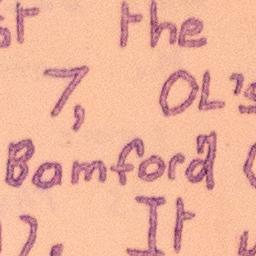 st the
7, OL's
Bomford
It